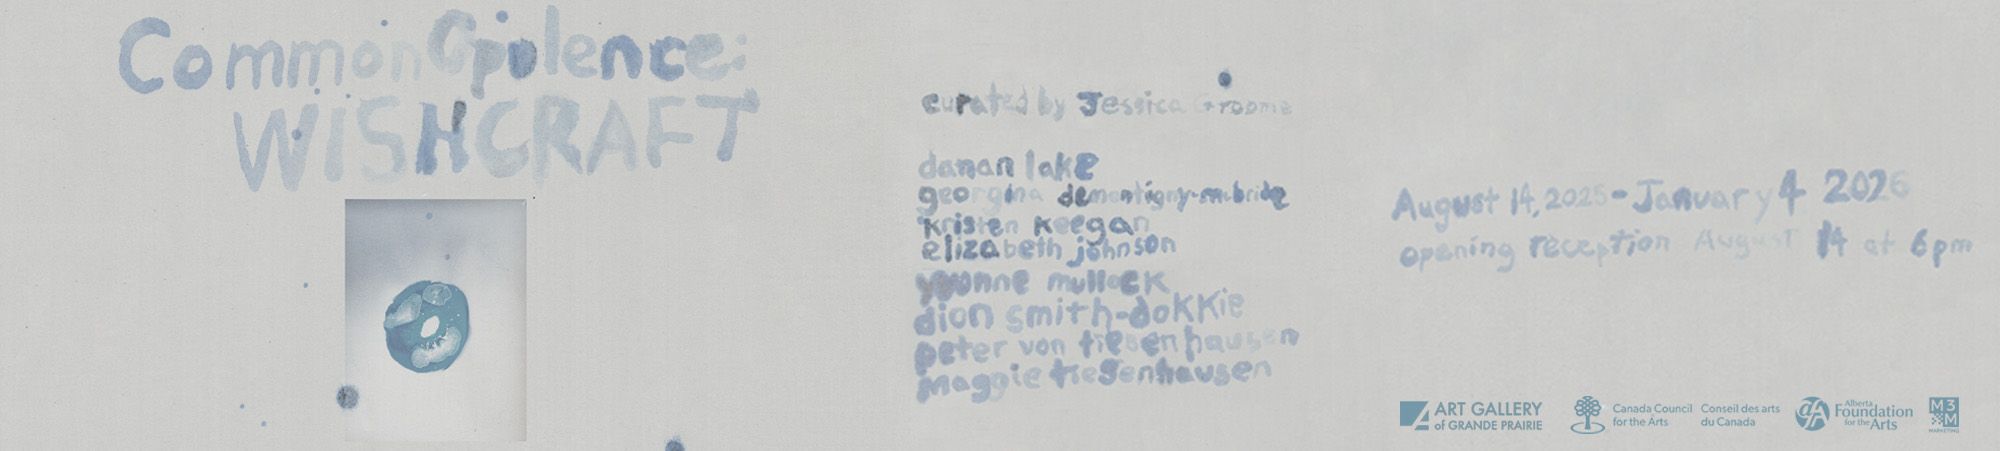 Common Opulence:
WISHCRAFT
curated by Jessica Groome
danan lake
georgina demontigny-mcbride
kristen keegan
elizabeth johnson
yvonne mullock
dion smith-dokkie
peter von tiesenhausen
maggie tiesenhausen
August 14, 2025 - January 4 2026
opening reception August 14 at 6pm
ART GALLERY
of GRANDE PRAIRIE
Canada Council for the Arts
Conseil des arts du Canada
Alberta Foundation for the Arts
M3M
MARKETING